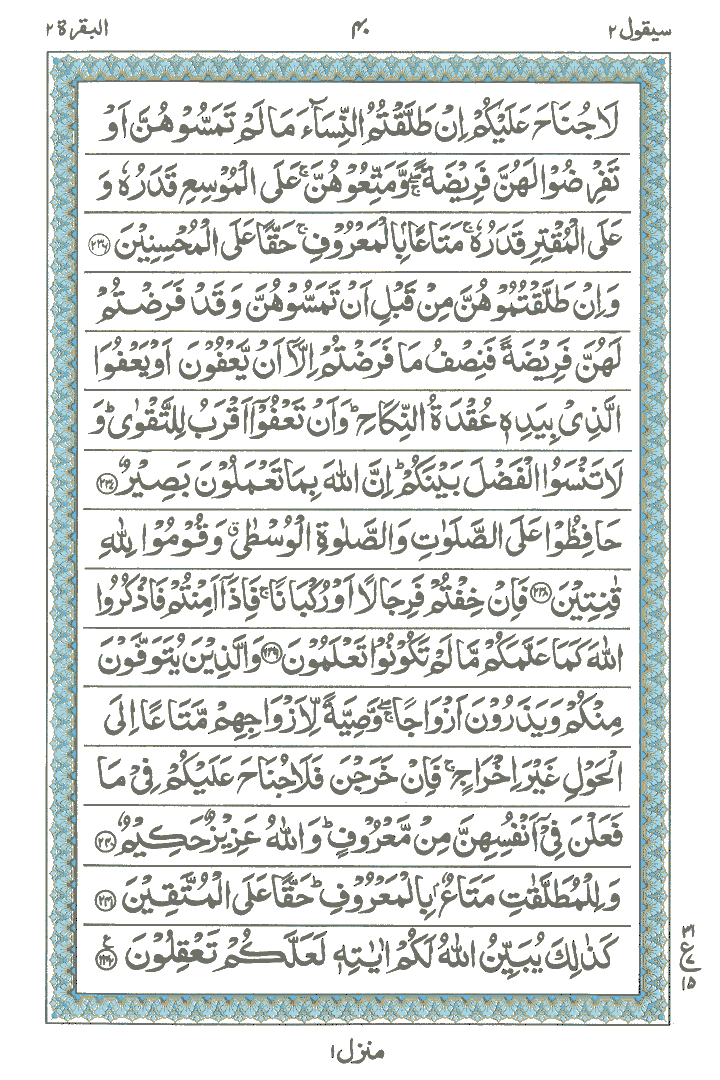 سيقول ٢ ٤٠ البقرة ٢
لَا جُنَاحَ عَلَيْكُمْ اِنْ طَلَّقْتُمُ النِّسَآءَ مَا لَمْ تَمَسُّوْهُنَّ اَوْ
تَفْرِضُوْا لَهُنَّ فَرِيْضَةً ۚۖ وَّمَتِّعُوْهُنَّ ۚ عَلَى الْمُوْسِعِ قَدَرُهٗ وَ
عَلَى الْمُقْتِرِ قَدَرُهٗ ۚ مَتَاعًۢا بِالْمَعْرُوْفِ ۚ حَقًّا عَلَى الْمُحْسِنِيْنَ ﴿٢٣٦﴾
وَاِنْ طَلَّقْتُمُوْهُنَّ مِنْ قَبْلِ اَنْ تَمَسُّوْهُنَّ وَقَدْ فَرَضْتُمْ
لَهُنَّ فَرِيْضَةً فَنِصْفُ مَا فَرَضْتُمْ اِلَّاۤ اَنْ يَّعْفُوْنَ اَوْ يَعْفُوَا
الَّذِيْ بِيَدِهٖ عُقْدَةُ النِّكَاحِ ؕ وَاَنْ تَعْفُوْۤا اَقْرَبُ لِلتَّقْوٰى ؕ وَ
لَا تَنْسَوُا الْفَضْلَ بَيْنَكُمْ ؕ اِنَّ اللّٰهَ بِمَا تَعْمَلُوْنَ بَصِيْرٌ ﴿٢٣٧﴾
حَافِظُوْا عَلَى الصَّلَوٰتِ وَالصَّلٰوةِ الْوُسْطٰى ۗ وَقُوْمُوْا لِلّٰهِ
قٰنِتِيْنَ ﴿٢٣٨﴾ فَاِنْ خِفْتُمْ فَرِجَالًا اَوْ رُكْبَانًا ۚ فَاِذَاۤ اَمِنْتُمْ فَاذْكُرُوا
اللّٰهَ كَمَا عَلَّمَكُمْ مَّا لَمْ تَكُوْنُوْا تَعْلَمُوْنَ ﴿٢٣٩﴾ وَالَّذِيْنَ يُتَوَفَّوْنَ
مِنْكُمْ وَيَذَرُوْنَ اَزْوَاجًا ۚۖ وَّصِيَّةً لِّاَزْوَاجِهِمْ مَّتَاعًا اِلَى
الْحَوْلِ غَيْرَ اِخْرَاجٍ ۚ فَاِنْ خَرَجْنَ فَلَا جُنَاحَ عَلَيْكُمْ فِيْ مَا
فَعَلْنَ فِيْۤ اَنْفُسِهِنَّ مِنْ مَّعْرُوْفٍ ؕ وَاللّٰهُ عَزِيْزٌ حَكِيْمٌ ﴿٢٤٠﴾
وَلِلْمُطَلَّقٰتِ مَتَاعٌۢ بِالْمَعْرُوْفِ ؕ حَقًّا عَلَى الْمُتَّقِيْنَ ﴿٢٤١﴾
كَذٰلِكَ يُبَيِّنُ اللّٰهُ لَكُمْ اٰيٰتِهٖ لَعَلَّكُمْ تَعْقِلُوْنَ ﴿٢٤٢﴾
٣١
ع ٧
١٥
منزل ١